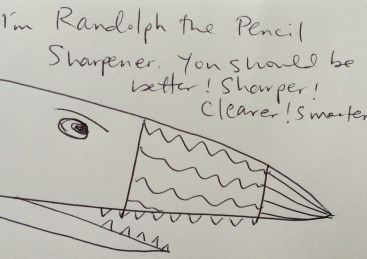 I'm Randolph the Pencil
Sharpener. You should be
better! Sharper!
Clearer! Smarter